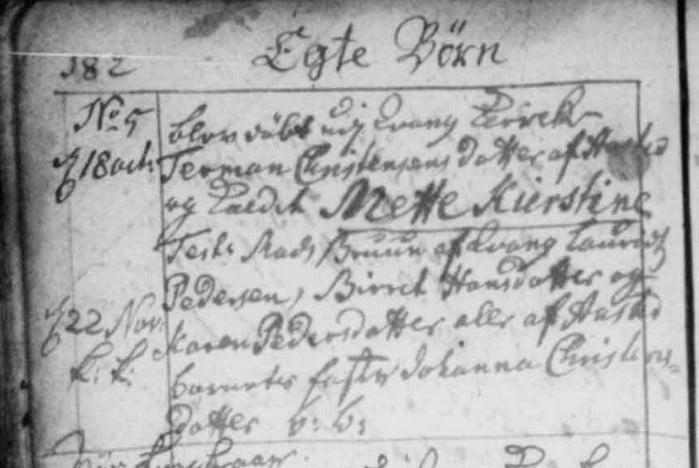 182
Egte Börn
No 5
blev döbt udj Qvang Kirck
d 18 oct:
Jerman Christensens datter af Hasted
og kaldt Mette Kierstine
Test: Mads Bruun af Qvang Lauridz
Pedersen, Birret Hansdatter og
d 22 Nov.
Maren Pedersdatter alle af Hasted
k: k:
barnetz faster Johanna Christens-
datter b: b: